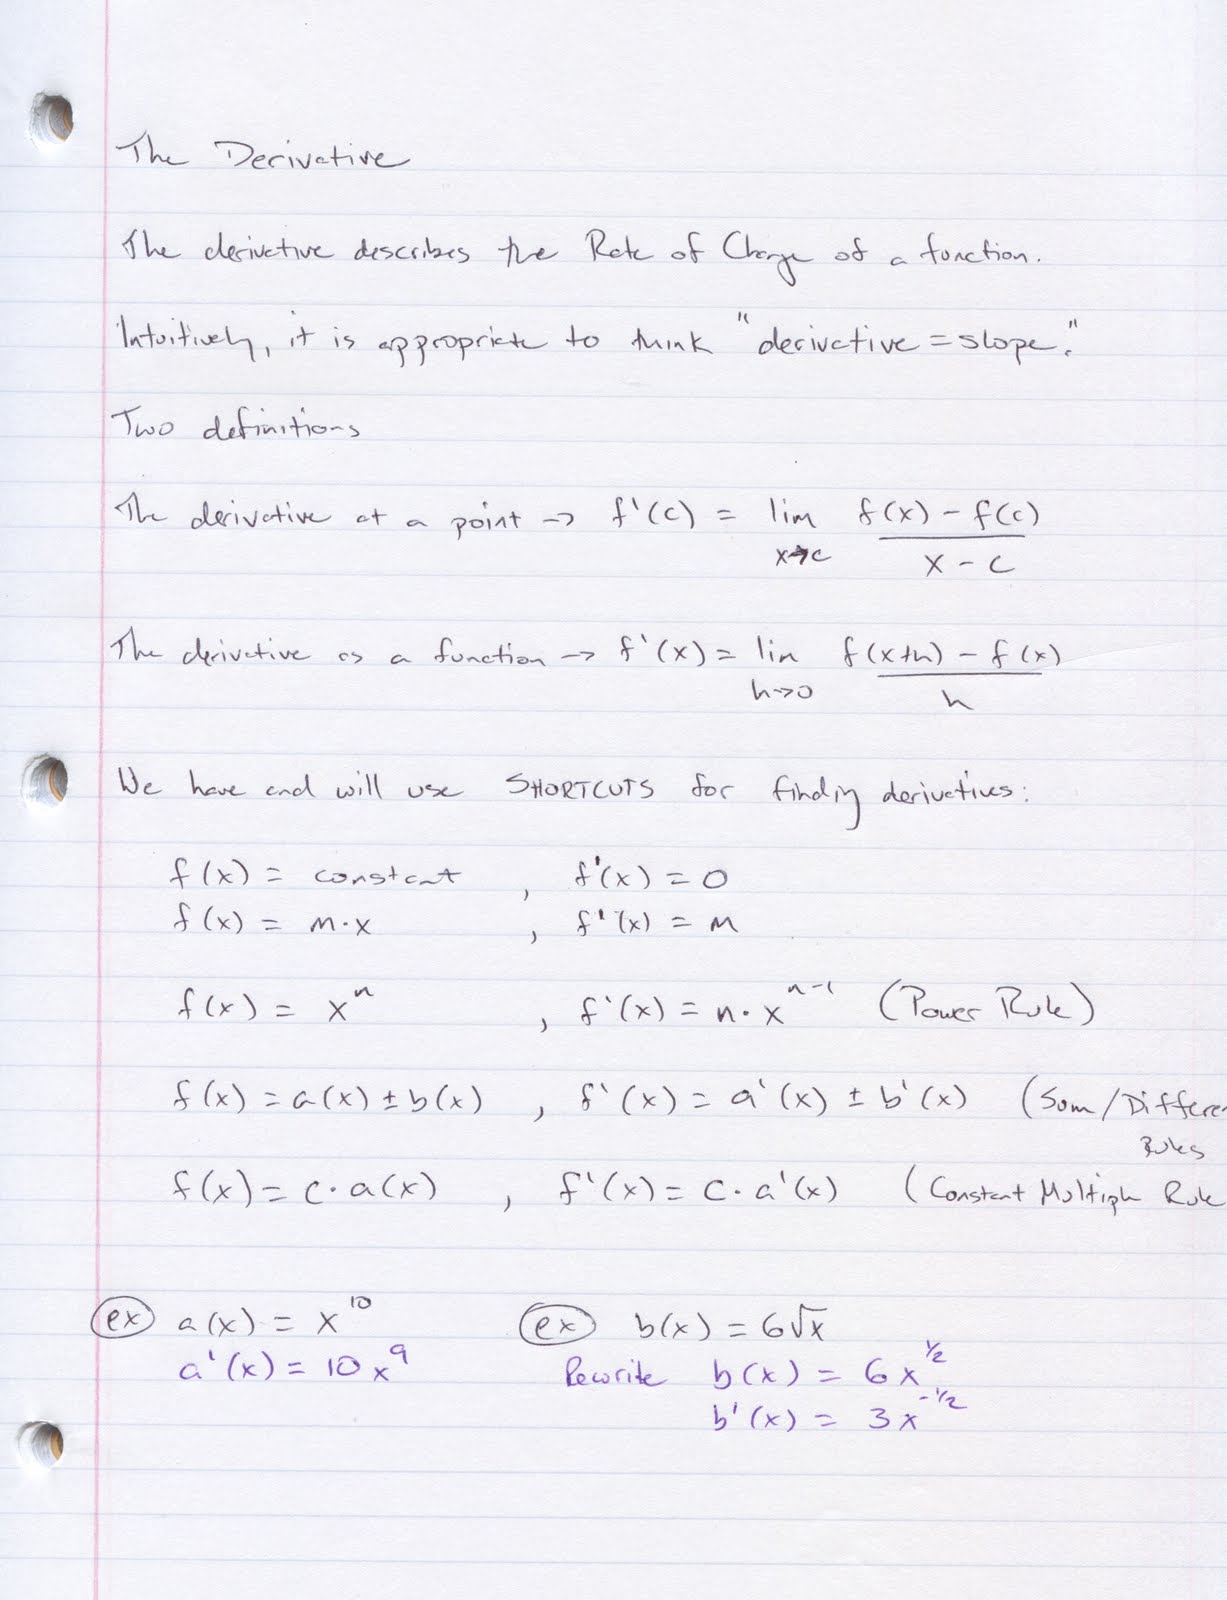 The Derivative
The derivative describes the Rate of Change of a function.
Intuitively, it is appropriate to think "derivative = slope."
Two definitions
The derivative at a point → f'(c) = lim x→c f(x) - f(c) / x - c
The derivative as a function → f'(x) = lim h→0 f(x+h) - f(x) / h
We have and will use SHORTCUTS for finding derivatives:
f(x) = constant , f'(x) = 0
f(x) = m·x , f'(x) = m
f(x) = x^n , f'(x) = n·x^n-1 (Power Rule)
f(x) = a(x) ± b(x) , f'(x) = a'(x) ± b'(x) (Sum/Differen
Rules
f(x) = c·a(x) , f'(x) = c·a'(x) (Constant Multiple Rule
ex a(x) = x^10
a'(x) = 10x^9
ex b(x) = 6√x
Rewrite b(x) = 6x^1/2
b'(x) = 3x^-1/2